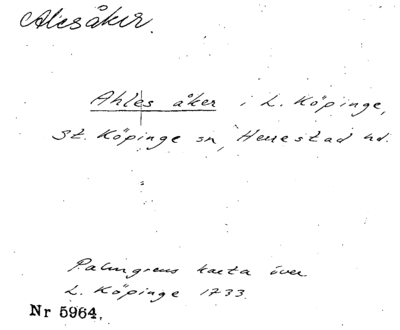 Alesåker.
Ahles åker i L. Köpinge,
St. Köpinge sn, Herrestad hd.
Palmgrens karta över
L. Köpinge 1733.
Nr 5964.